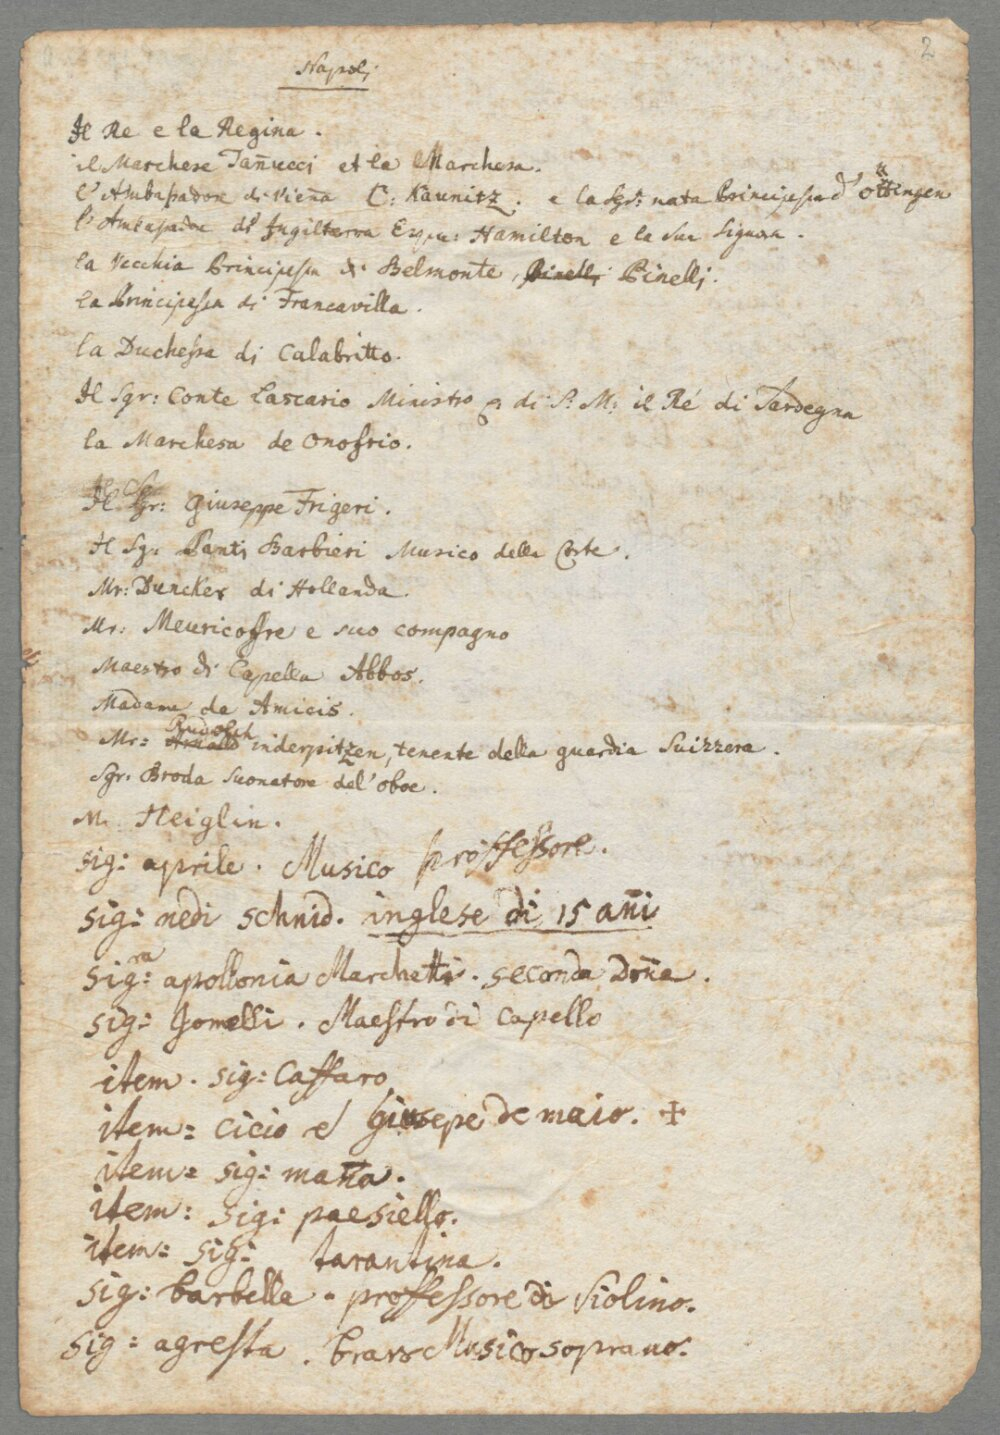 2
Napoli
Il Re e la Regina.
il Marchese Tan̄ucci et la Marchesa.
l'Ambaßadore di Vien̄a C: Kaunitz. e la Sgra: nata Principeßa d' Öttingen
l'Ambasadore di Ingilterra Hamilton e la Sua Signora.
la Vecchia Principeßa di Belmonte, Pinelli Pinelli.
la Principeßa di Francavilla.
la Ducheßa di Calabritto.
Il Sgr: Conte Lascario Ministro di S: M: il Ré di Sardegna
la Marchesa de Onofrio.
Il Sgr: Giuseppe Frigeri.
Il Sgr Santi Barbieri Musico della Corte.
Mr: Duncker di Hollanda.
Mr: Meuricoffre e suo compagno
Maestro di Capella Abbos.
Madame de Amicis.
Rudolph
Mr: Arnold inderpitzen, tenente della guardia Suizzera.
Sgr: Broda Suonatore del' oboe.
M: Heiglin.
sig: aprile. Musico proffeßore.
sig: nedi schnid. inglese di 15 an̄i
sigra: apollonia Marchetti. seconda Don̄a.
sig: Jomelli. Maestro di Capello
item. sig: Caffaro
item: cicio e Giusepe de maio. ✢
item: sig: man̄a.
item: sig: paesiello.
item: sig: tarantina.
sig: barbella. proffeßore di Violino.
sig: agresta. bravo Musico soprano.